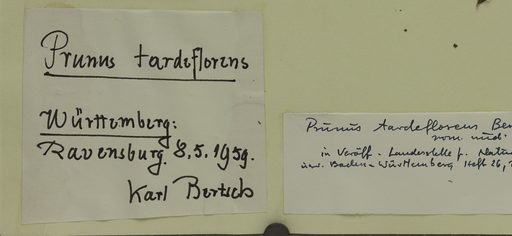 Prunus tardeflorens
Württemberg:
Ravensburg. 8.5.1959.
Karl Bertsch
Prunus tardeflorens Ber
nom. nud.
in Veröff. Landesstelle f. Natu
u. Baden-Württemberg Heft 26,